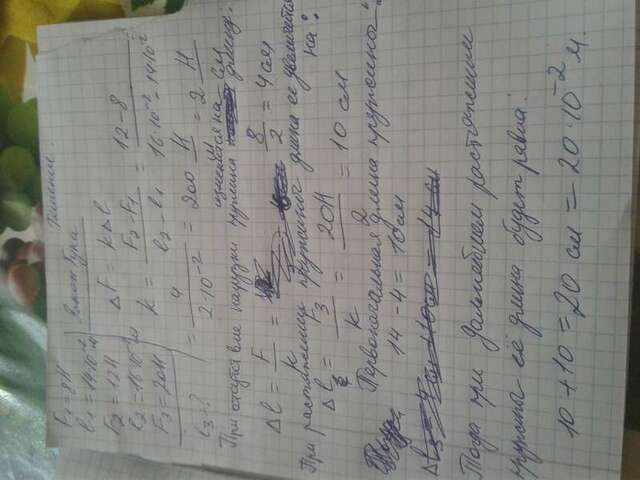 F₁ = 8 Н
l₁ = 14·10⁻² м
F₂ = 12 Н
l₂ = 16·10⁻² м
F₃ = 20 Н
l₃ - ?
Решение.
ΔF = kΔl
k = F₂ - F₁ / l₂ - l₁ = 12 - 8 / 16·10⁻² - 14·10⁻²
= 4 / 2·10⁻² = 200 Н/м = 2 Н/см
При нагрузки пружина на длину.
Δl = F / k = 8 / 2 = 4 см
При растяжении пружины длина её увеличится на:
Δl₃ = F₃ / k = 20 Н / 2 = 10 см
Первоначальная длина пружины
14 - 4 = 10 см
Тогда при дальнейшем растяжении
пружины её длина будет равна:
10 + 10 = 20 см = 20·10⁻² м.